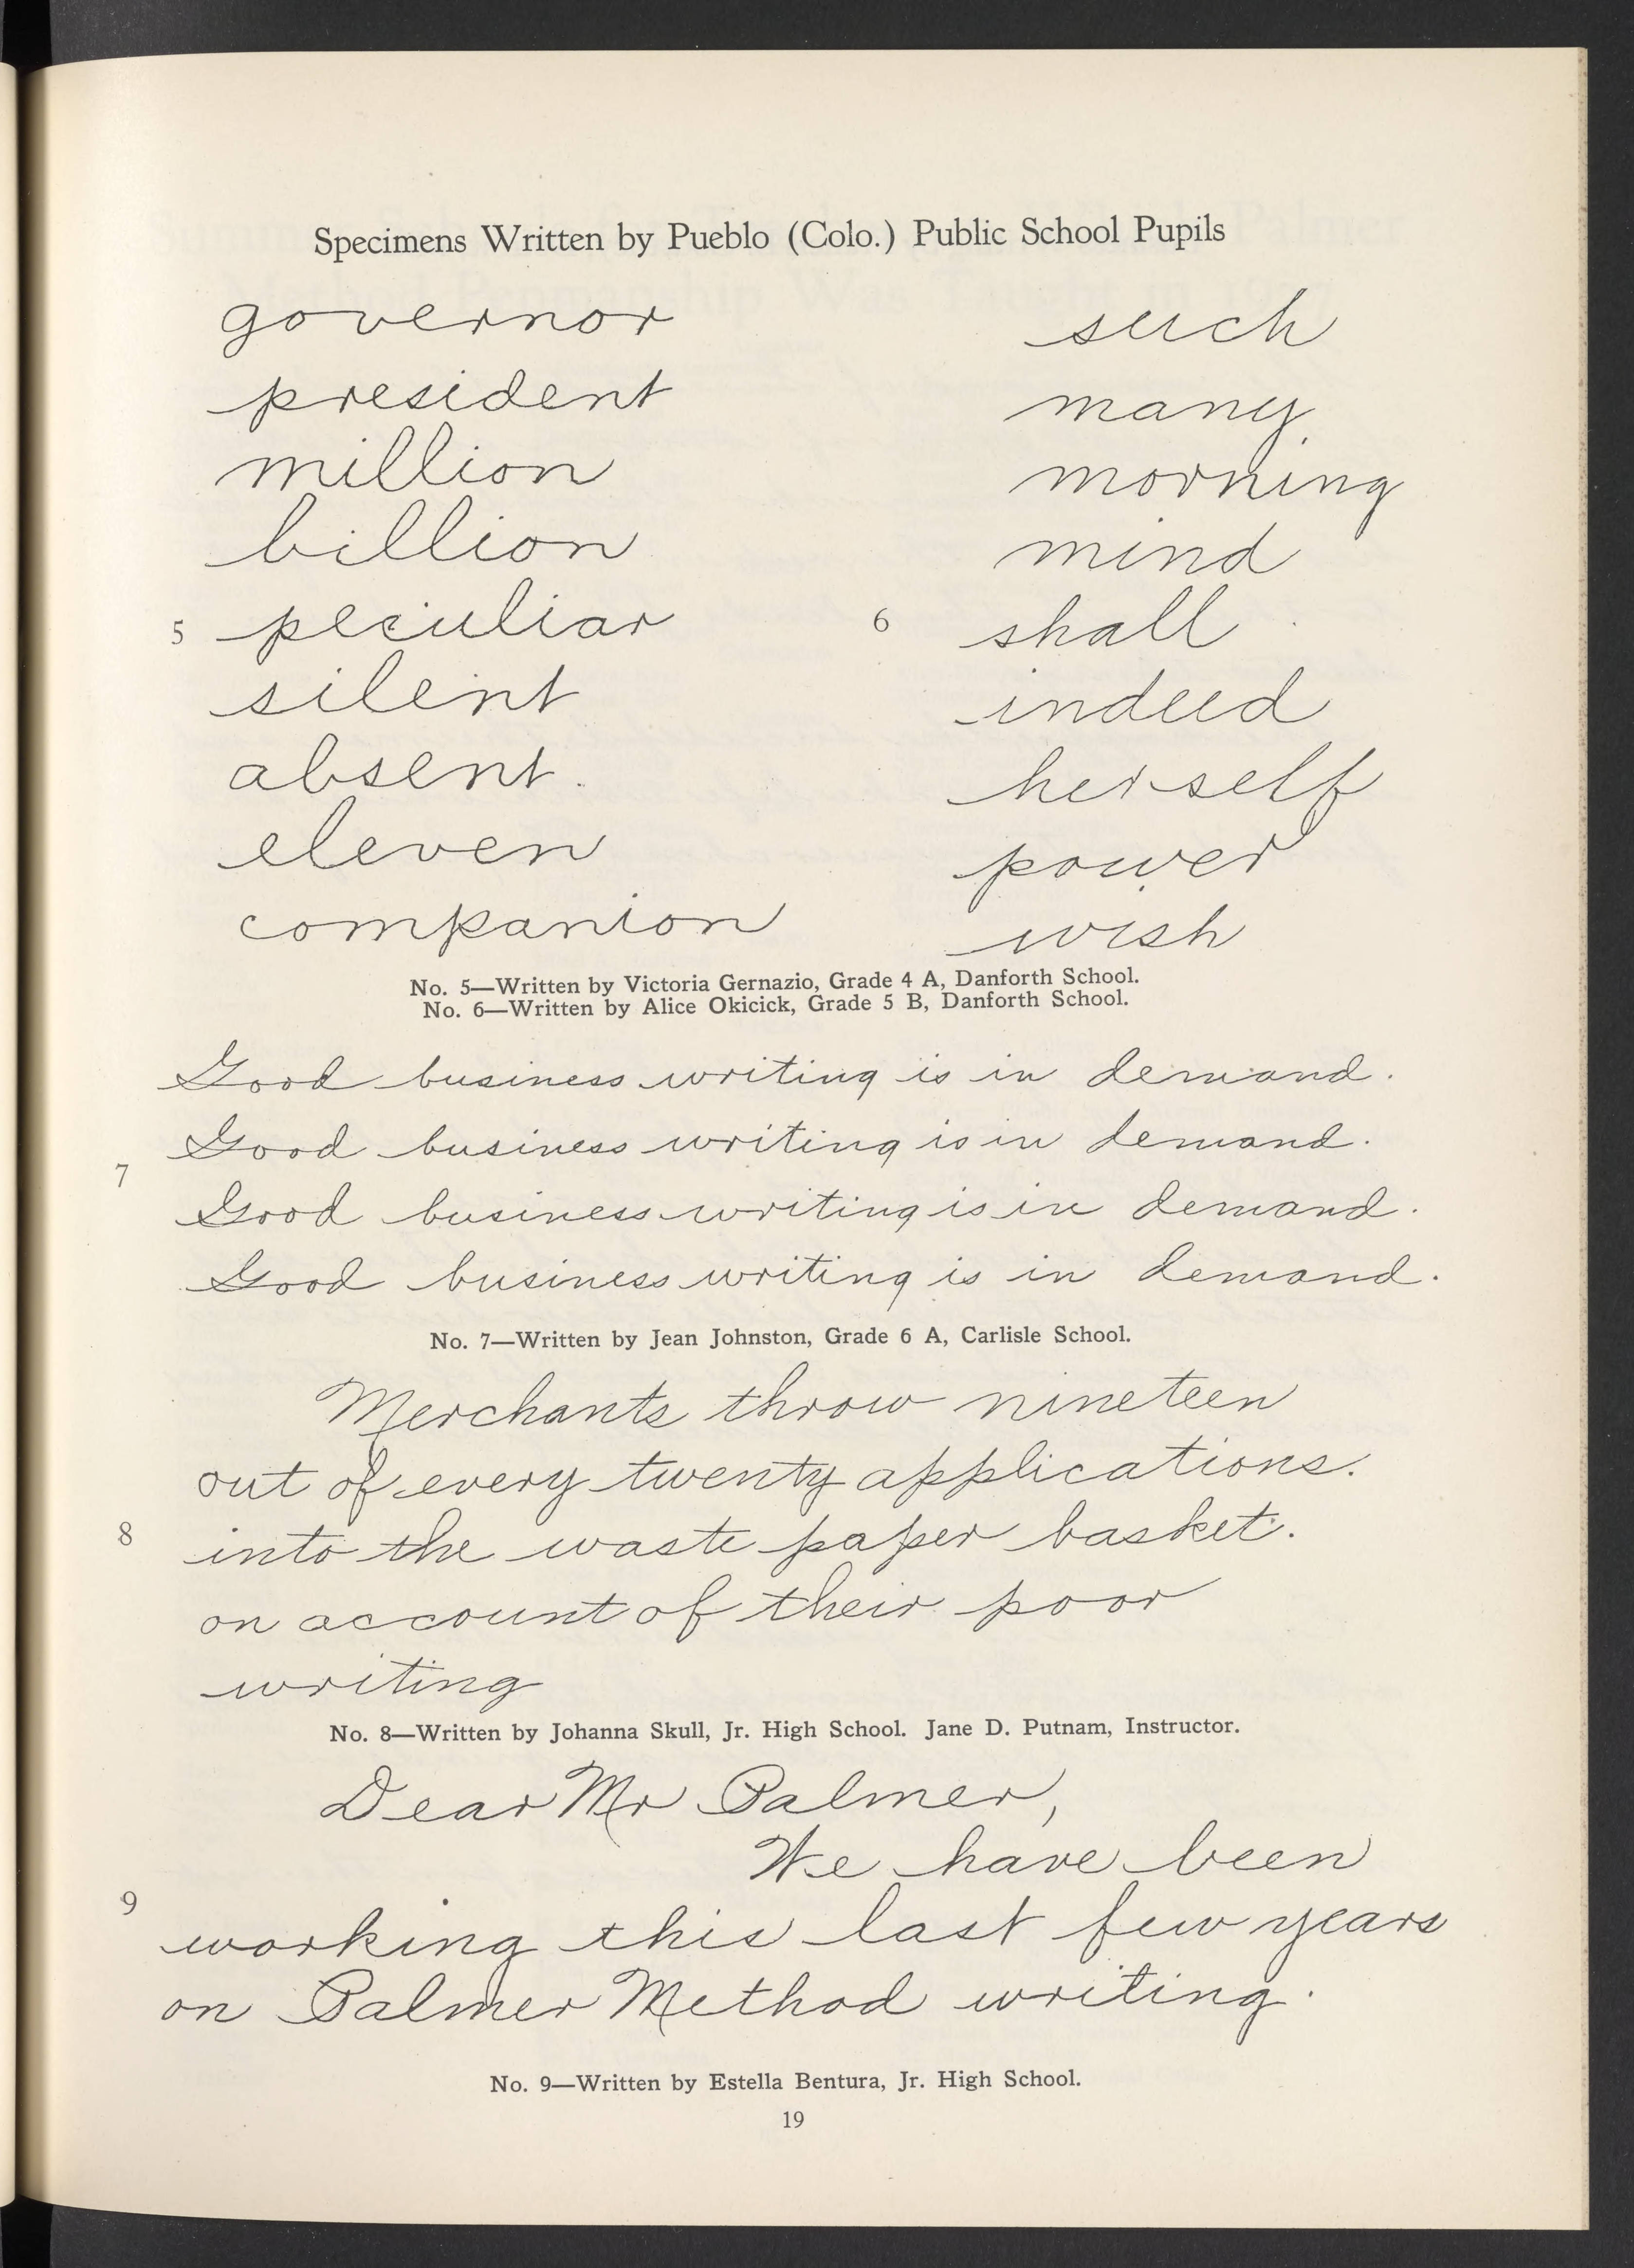 Specimens Written by Pueblo (Colo.) Public School Pupils
governor
president
million
billion
5 peciuliar
silent
absent.
eleven
companion
such
many
morning
mind
6 shall
indeed
herself
power
wish
No. 5—Written by Victoria Gernazio, Grade 4 A, Danforth School.
No. 6—Written by Alice Okicick, Grade 5 B, Danforth School.
Good business writing is in demand.
Good business writing is in demand.
7
Good business writing is in demand.
Good business writing is in demand.
No. 7—Written by Jean Johnston, Grade 6 A, Carlisle School.
Merchants throw nineteen
out of every twenty applications.
8 into the waste paper basket.
on account of their poor
writing
No. 8—Written by Johanna Skull, Jr. High School. Jane D. Putnam, Instructor.
Dear Mr Palmer,
We have been
9
working this last few years
on Palmer Method writing.
No. 9—Written by Estella Bentura, Jr. High School.
19